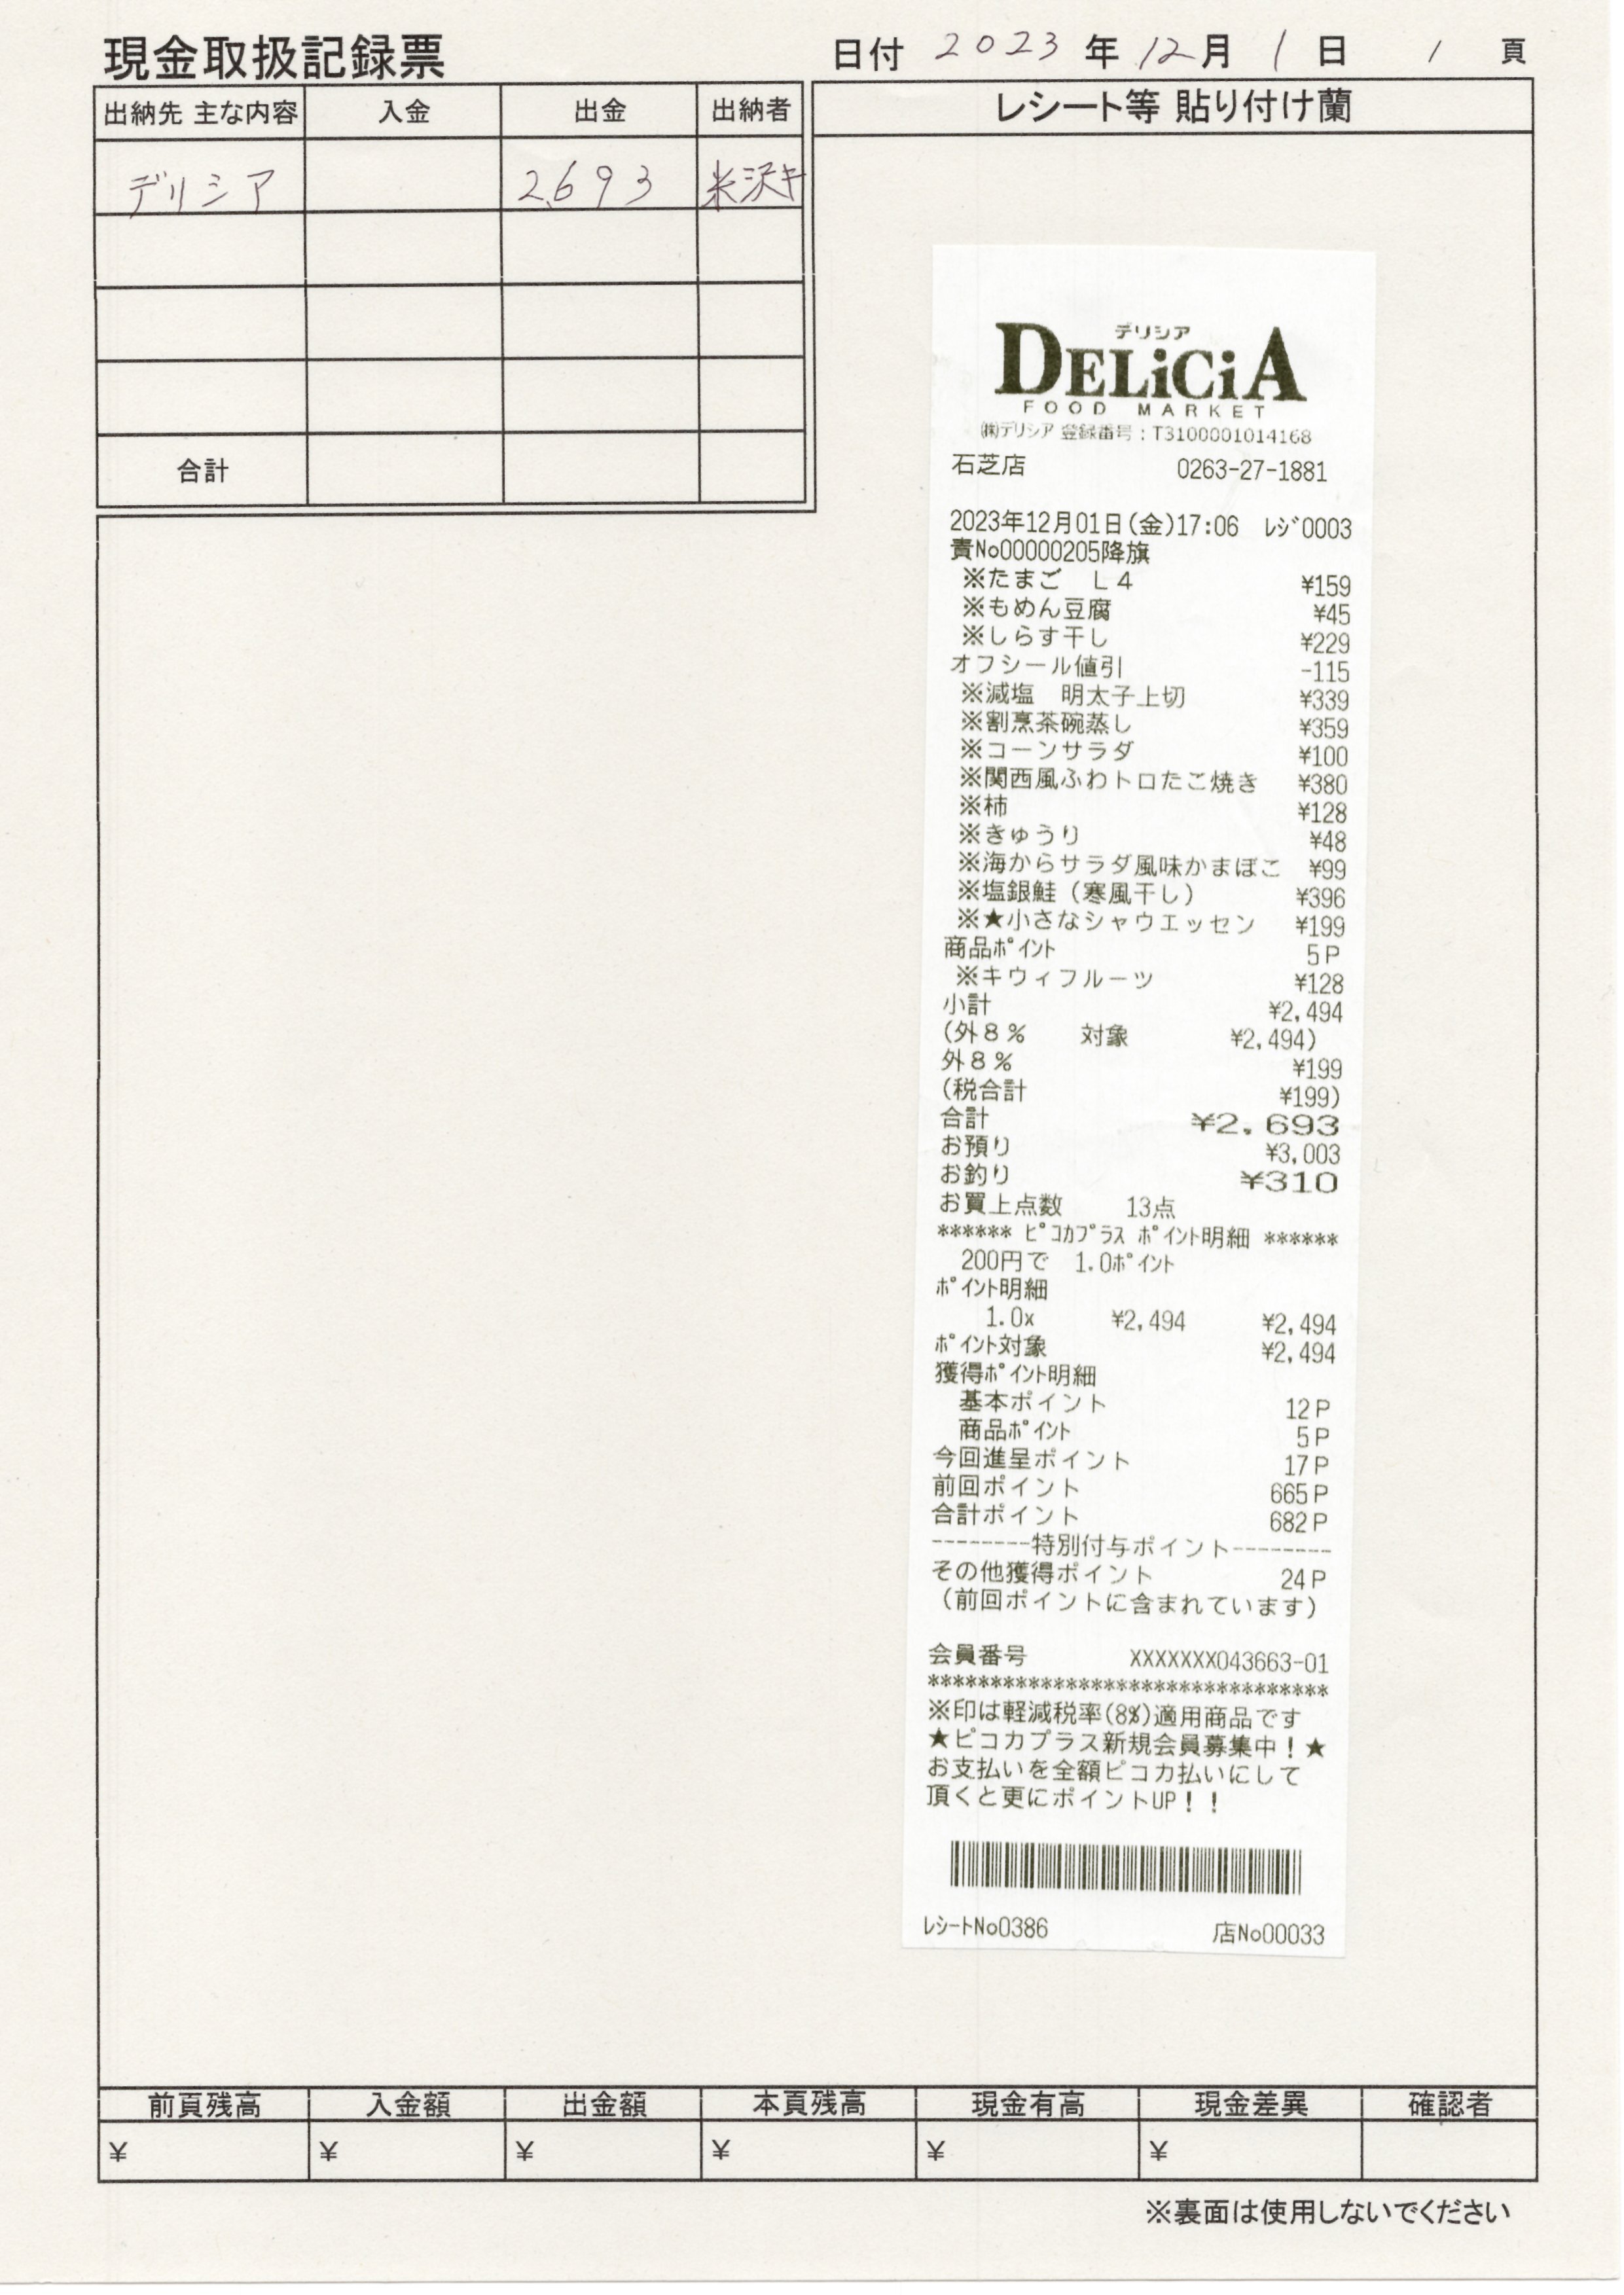 現金取扱記録票
日付 2023 年 12 月 1 日 1 頁
出納先 主な内容 入金 出金 出納者
デリシア 2,693 米沢キ
合計
レシート等 貼り付け蘭
デリシア
DELiCiA
FOOD MARKET
㈱デリシア 登録番号：T3100001014168
石芝店 0263-27-1881
2023年12月01日(金)17:06 ﾚｼﾞ0003
責No00000205降旗
※たまご L4 ¥159
※もめん豆腐 ¥45
※しらす干し ¥229
オフシール値引 -115
※減塩 明太子上切 ¥339
※割烹茶碗蒸し ¥359
※コーンサラダ ¥100
※関西風ふわトロたこ焼き ¥380
※柿 ¥128
※きゅうり ¥48
※海からサラダ風味かまぼこ ¥99
※塩銀鮭（寒風干し） ¥396
※★小さなシャウエッセン ¥199
商品ﾎﾟｲﾝﾄ 5P
※キウィフルーツ ¥128
小計 ¥2,494
(外8% 対象 ¥2,494)
外8% ¥199
(税合計 ¥199)
合計 ¥2,693
お預り ¥3,003
お釣り ¥310
お買上点数 13点
****** ﾋﾟｺｶﾌﾟﾗｽ ﾎﾟｲﾝﾄ明細 ******
200円で 1.0ﾎﾟｲﾝﾄ
ﾎﾟｲﾝﾄ明細
1.0x ¥2,494 ¥2,494
ﾎﾟｲﾝﾄ対象 ¥2,494
獲得ﾎﾟｲﾝﾄ明細
基本ポイント 12P
商品ﾎﾟｲﾝﾄ 5P
今回進呈ポイント 17P
前回ポイント 665P
合計ポイント 682P
--------特別付与ポイント--------
その他獲得ポイント 24P
（前回ポイントに含まれています）
会員番号 XXXXXXX043663-01
********************************
※印は軽減税率(8%)適用商品です
★ピコカプラス新規会員募集中！★
お支払いを全額ピコカ払いにして
頂くと更にポイントUP！！
ﾚｼｰﾄNo0386 店No00033
前頁残高 入金額 出金額 本頁残高 現金有高 現金差異 確認者
¥ ¥ ¥ ¥ ¥ ¥
※裏面は使用しないでください